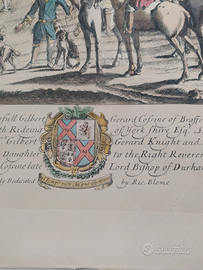 Gilbert Gerard Cosine of Braffe
Rideing of Yorkshire Esq.
Gilbert Gerard Knight and
Daughter to the Right Reveren
Cosine late Lord Bishop of Durha
Dedicated by Ric. Blome
subito